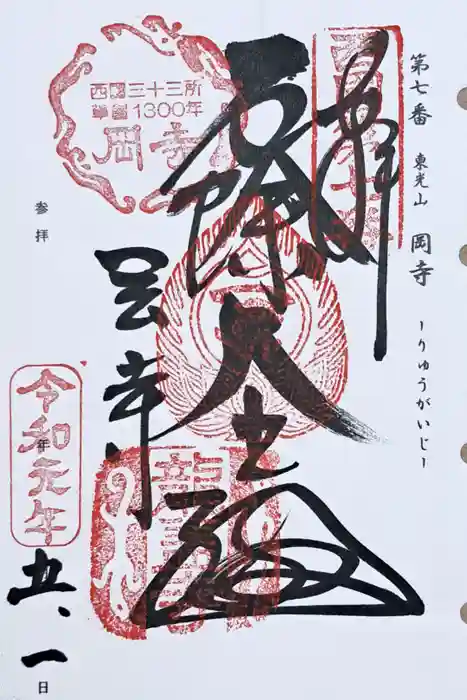 第七番 東光山 岡寺 ーりゅうがいじー
奉拝
西国三十三所
草創1300年
岡寺
厄除大士
岡寺
参拝
令和元年
年
五、一
日